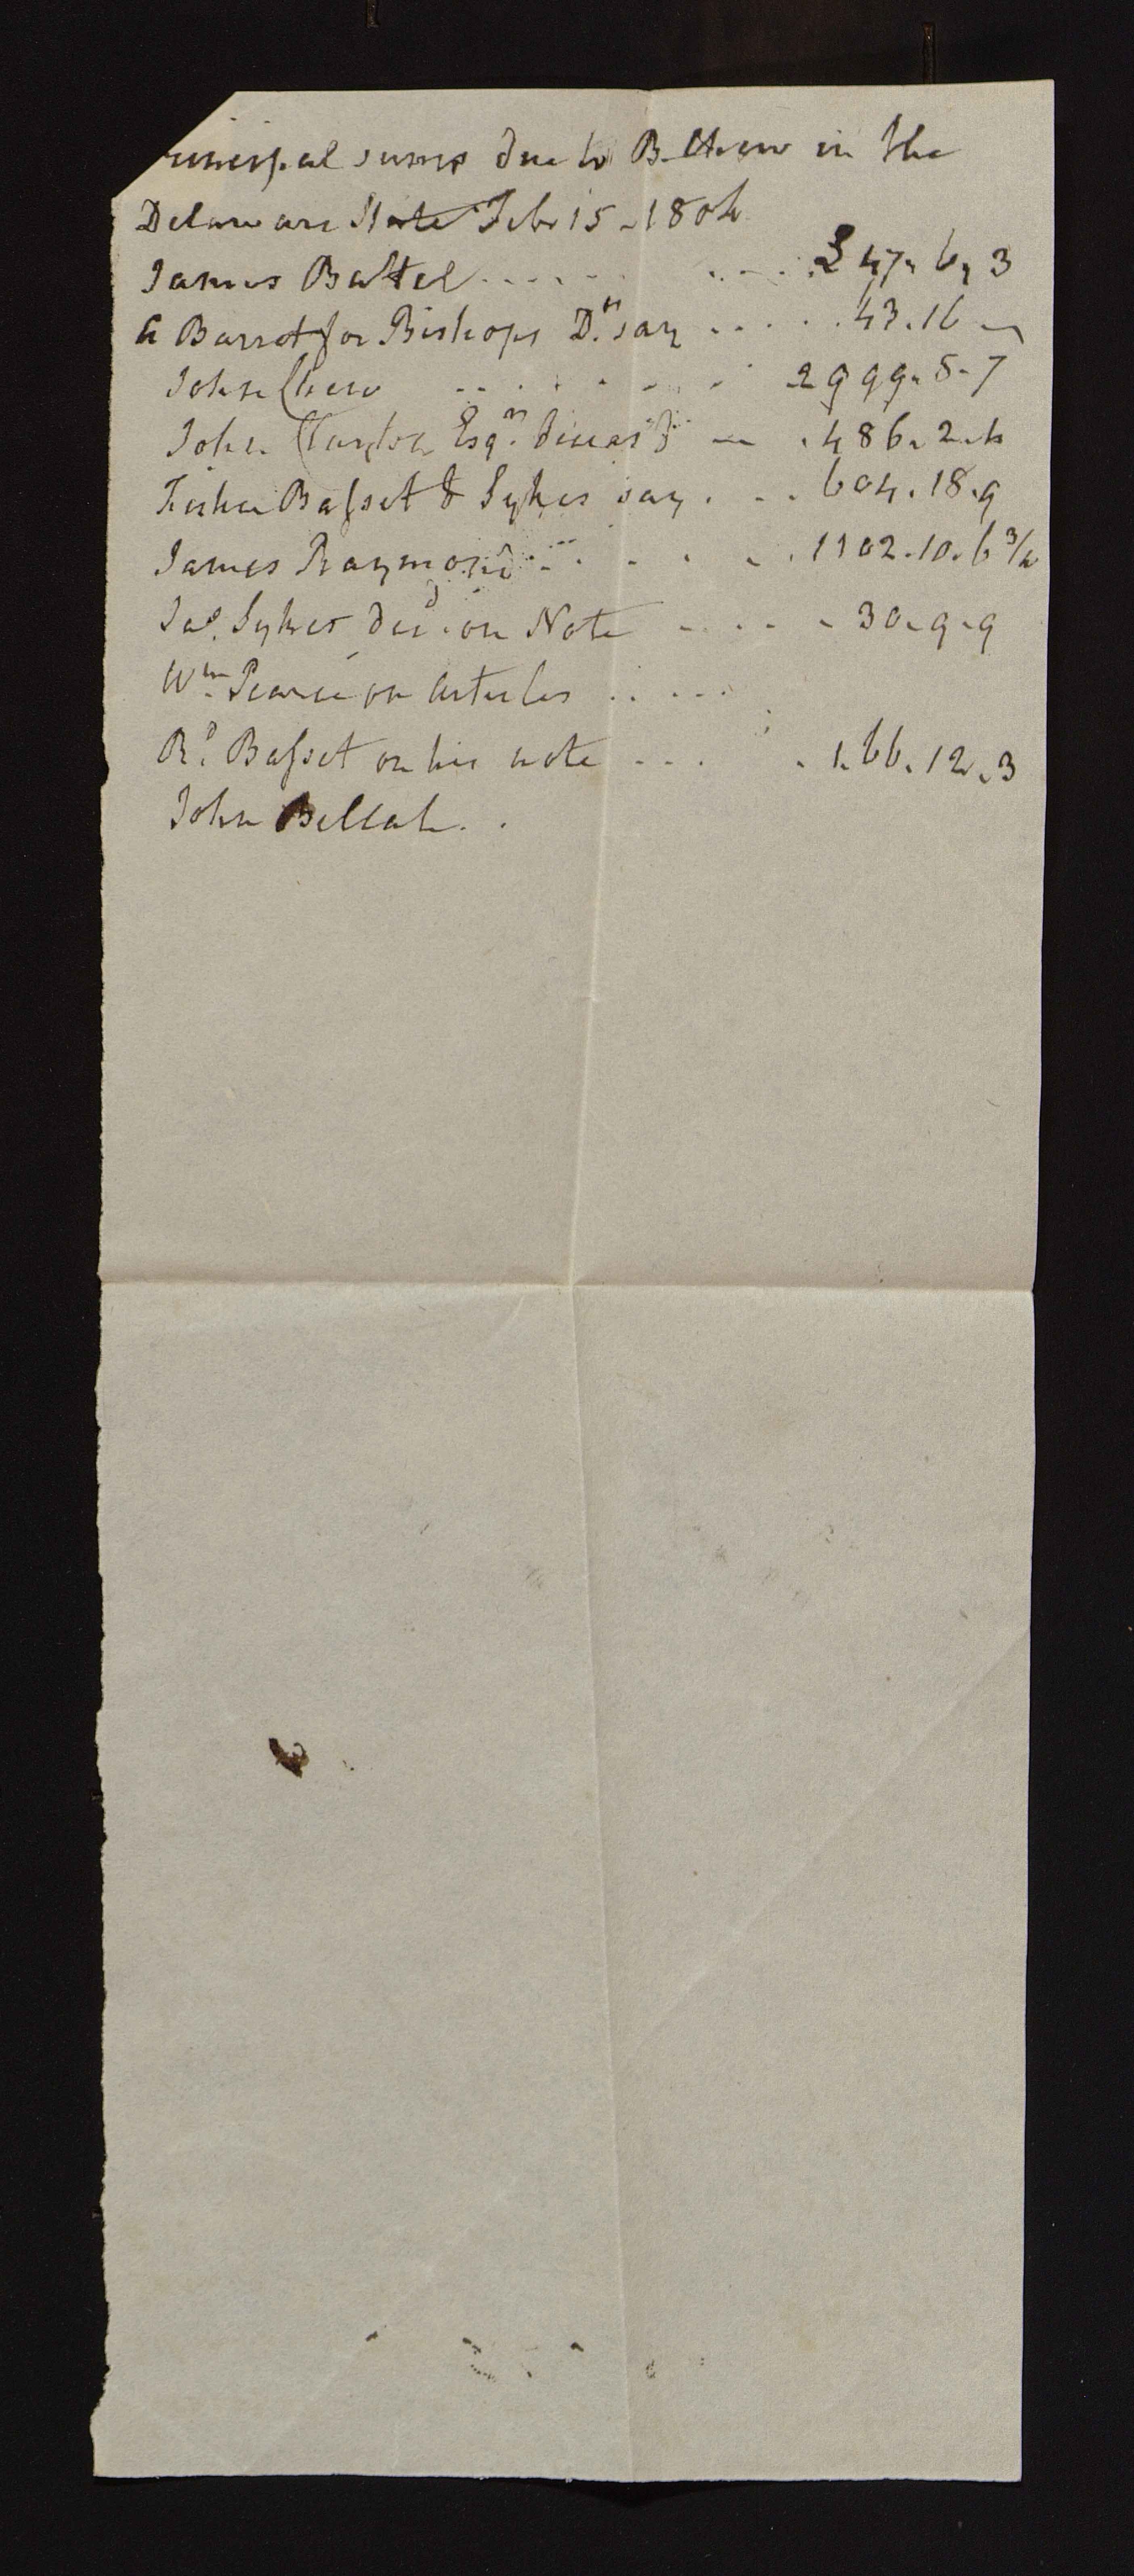 rincipal sums due to B. Chew in the
Delaware State Feb 15 - 1804
James Battel . . . . . . . . 347. 6, 3
A Barret for Bishops D.n say . . . . . 43. 16 -
John Chew . . . . . . . 2999. 8. 7
John Clayton Esqr. deceas'd - . 486. 2. 4
Fisher Basset & Sykes say . . . 604. 18. 9
James Raymond . . . . . . 1102. 10. 6 3/4
Jas. Sykes decd. on Note . . . . . 30. 9. 9
Wm. Pearce on Articles . . . . .
Rd. Basset on his note . . . . 166. 12. 3
John Bellah . .